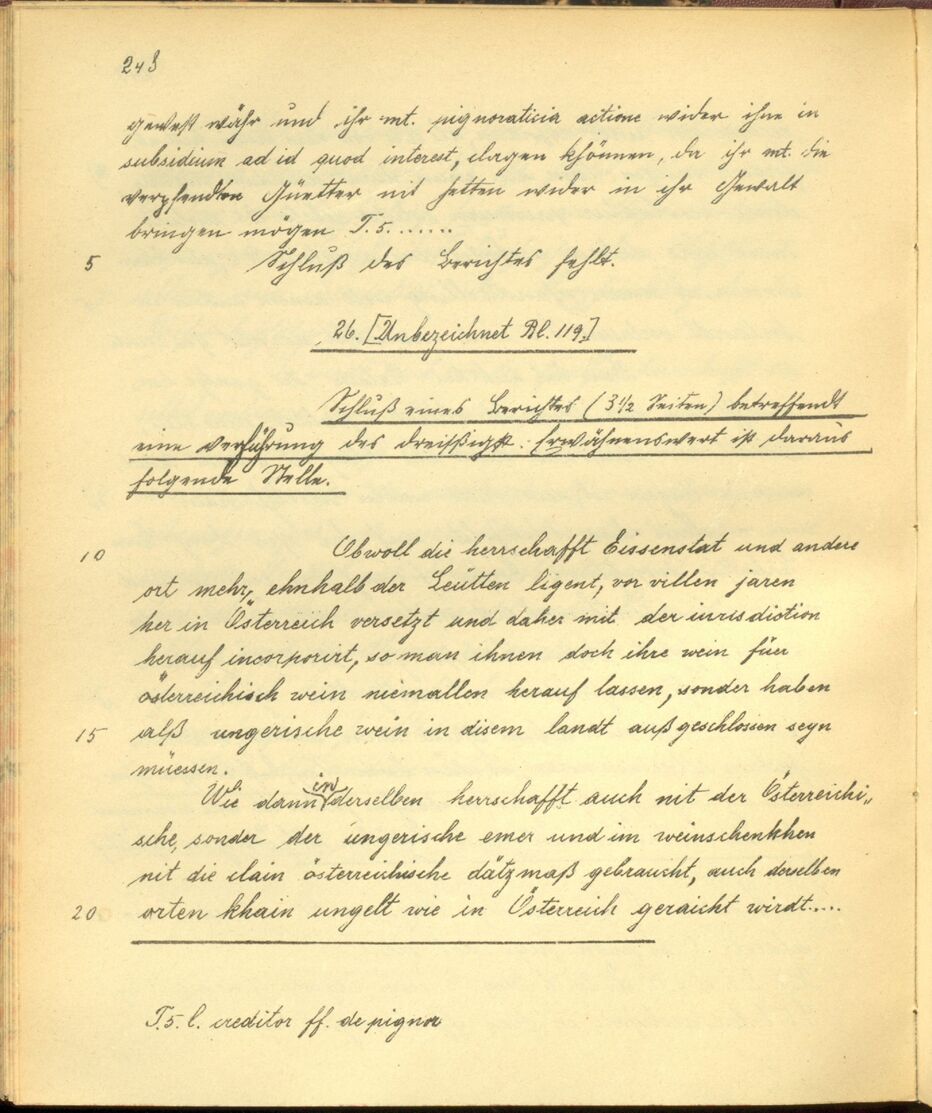 248
gewest währ und ihr mt. pignoraticia actione wider ihne in
subsidium ad id quod interest, clagen khönnen, da ihr mt. die
verpfendten Güetter nit hetten wider in ihr Gewalt
bringen mögen T. 5.......
5 Schluß des Berichtes fehlt.
26. [Unbezeichnet Bl. 119]
Schluß eines Berichtes (3 1/2 Seiten) betreffendt
eine verführung des dreißigst. Erwähnenswert ist daraus
folgende Stelle.
10 Obwoll die herrschafft Eissenstat und andere
ort mehr, ehnhalb der Leütten ligent, vor villen jaren
her in Österreich versetzt und daher mit der iurisdiction
herauf incorporirt, so man ihnen doch ihre wein füer
österreichisch wein niemallen herauf lassen, sonder haben
15 alß ungerische wein in disem landt außgeschlossen seyn
müessen.
Wie dann in derselben herrschafft auch nit der Österreichi„
sche, sonder der ungerische emer und im weinschenkhen
nit die clain österreichische dätzmaß gebraucht, auch derselben
20 orten khain ungelt wie in Österreich geraicht wirdt....
T. 5. l. creditor ff. de pignor